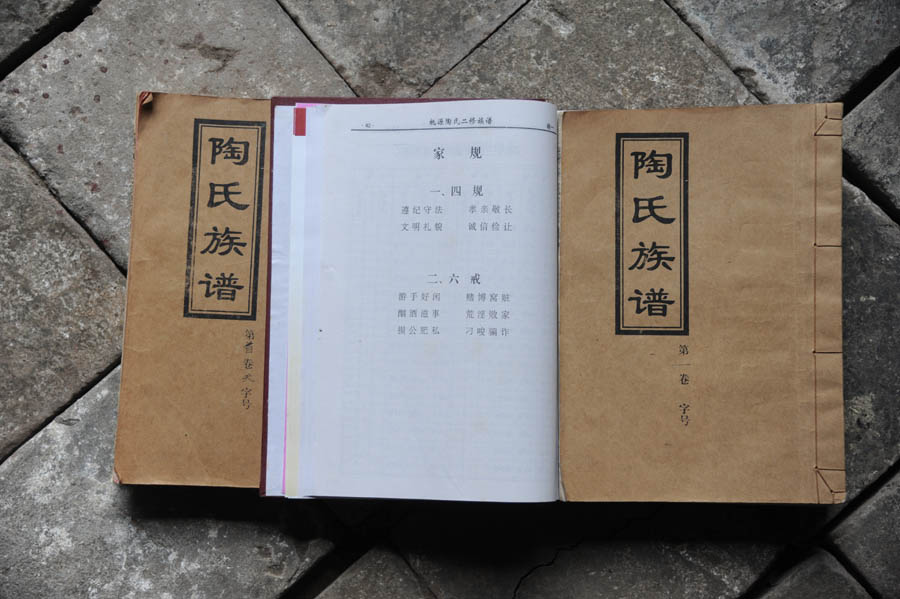 陶氏族谱
第首卷天字号
·82·
桃源陶氏二修族谱
卷一
家 规
一、四 规
遵纪守法 孝亲敬长
文明礼貌 诚信俭让
二、六 戒
游手好闲 赌博窝赃
酗酒造事 荒淫败家
损公肥私 刁唆骗诈
陶氏族谱
第一卷 字号